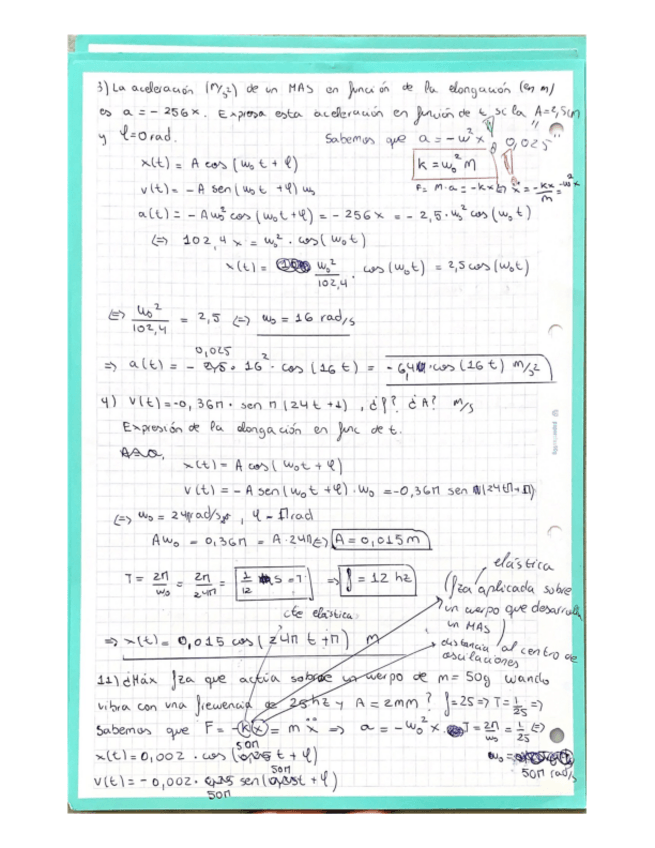 3) La aceleración (m/s²) de un MAS en función de la elongación (en m)
es a = - 256x. Expresa esta aceleración en función de t si la A=2,5cm
y φ=0 rad. Sabemos que a = -ω²x 0,025
x(t) = A cos (ω₀t + φ) k = ω₀²m
v(t) = - A sen (ω₀t + φ) ω₀ F = m·a = -kx ẍ = -kx/m = -ω₀²x
a(t) = - Aω₀² cos (ω₀t + φ) = - 256x = - 2,5·ω₀² cos (ω₀t)
⇔ 102,4 x = ω₀² · cos (ω₀t)
x(t) = ω₀²/102,4 · cos (ω₀t) = 2,5 cos (ω₀t)
⇔ ω₀²/102,4 = 2,5 ⇔ ω₀ = 16 rad/s
0,025
⇒ a(t) = - 2,5 · 16² · cos (16t) = - 6,4 · cos (16t) m/s²
4) v(t) = -0,36π · sen π (24t + 1) , ¿f? ¿A? m/s
Expresión de la elongación en func de t.
x(t) = A cos (ω₀t + φ)
v(t) = - A sen (ω₀t + φ) · ω₀ = -0,36π sen (24tπ + π)
⇔ ω₀ = 24π rad/s, φ = π rad
Aω₀ = 0,36π = A · 24π ⇔ A = 0,015 m
elástica
T = 2π/ω₀ = 2π/24π = 1/12 s = T ⇒ f = 12 hz
(fza aplicada sobre
un cuerpo que desarrolla
un MAS)
cte elástica
distancia al centro de
oscilaciones
⇒ x(t) = 0,015 cos (24π t + π) m
11) ¿Máx fza que actúa sobre un cuerpo de m = 50g cuando
vibra con una frecuencia de 25hz y A = 2mm? f = 25 ⇒ T = 1/25 ⇒
Sabemos que F = -kx = m ẍ ⇒ a = - ω₀² x. T = 2π/ω₀ = 1/25 ⇔
x(t) = 0,002 · cos (50π t + φ) ω₀ = 50π rad/s
v(t) = - 0,002 · 50π sen (50π t + φ)